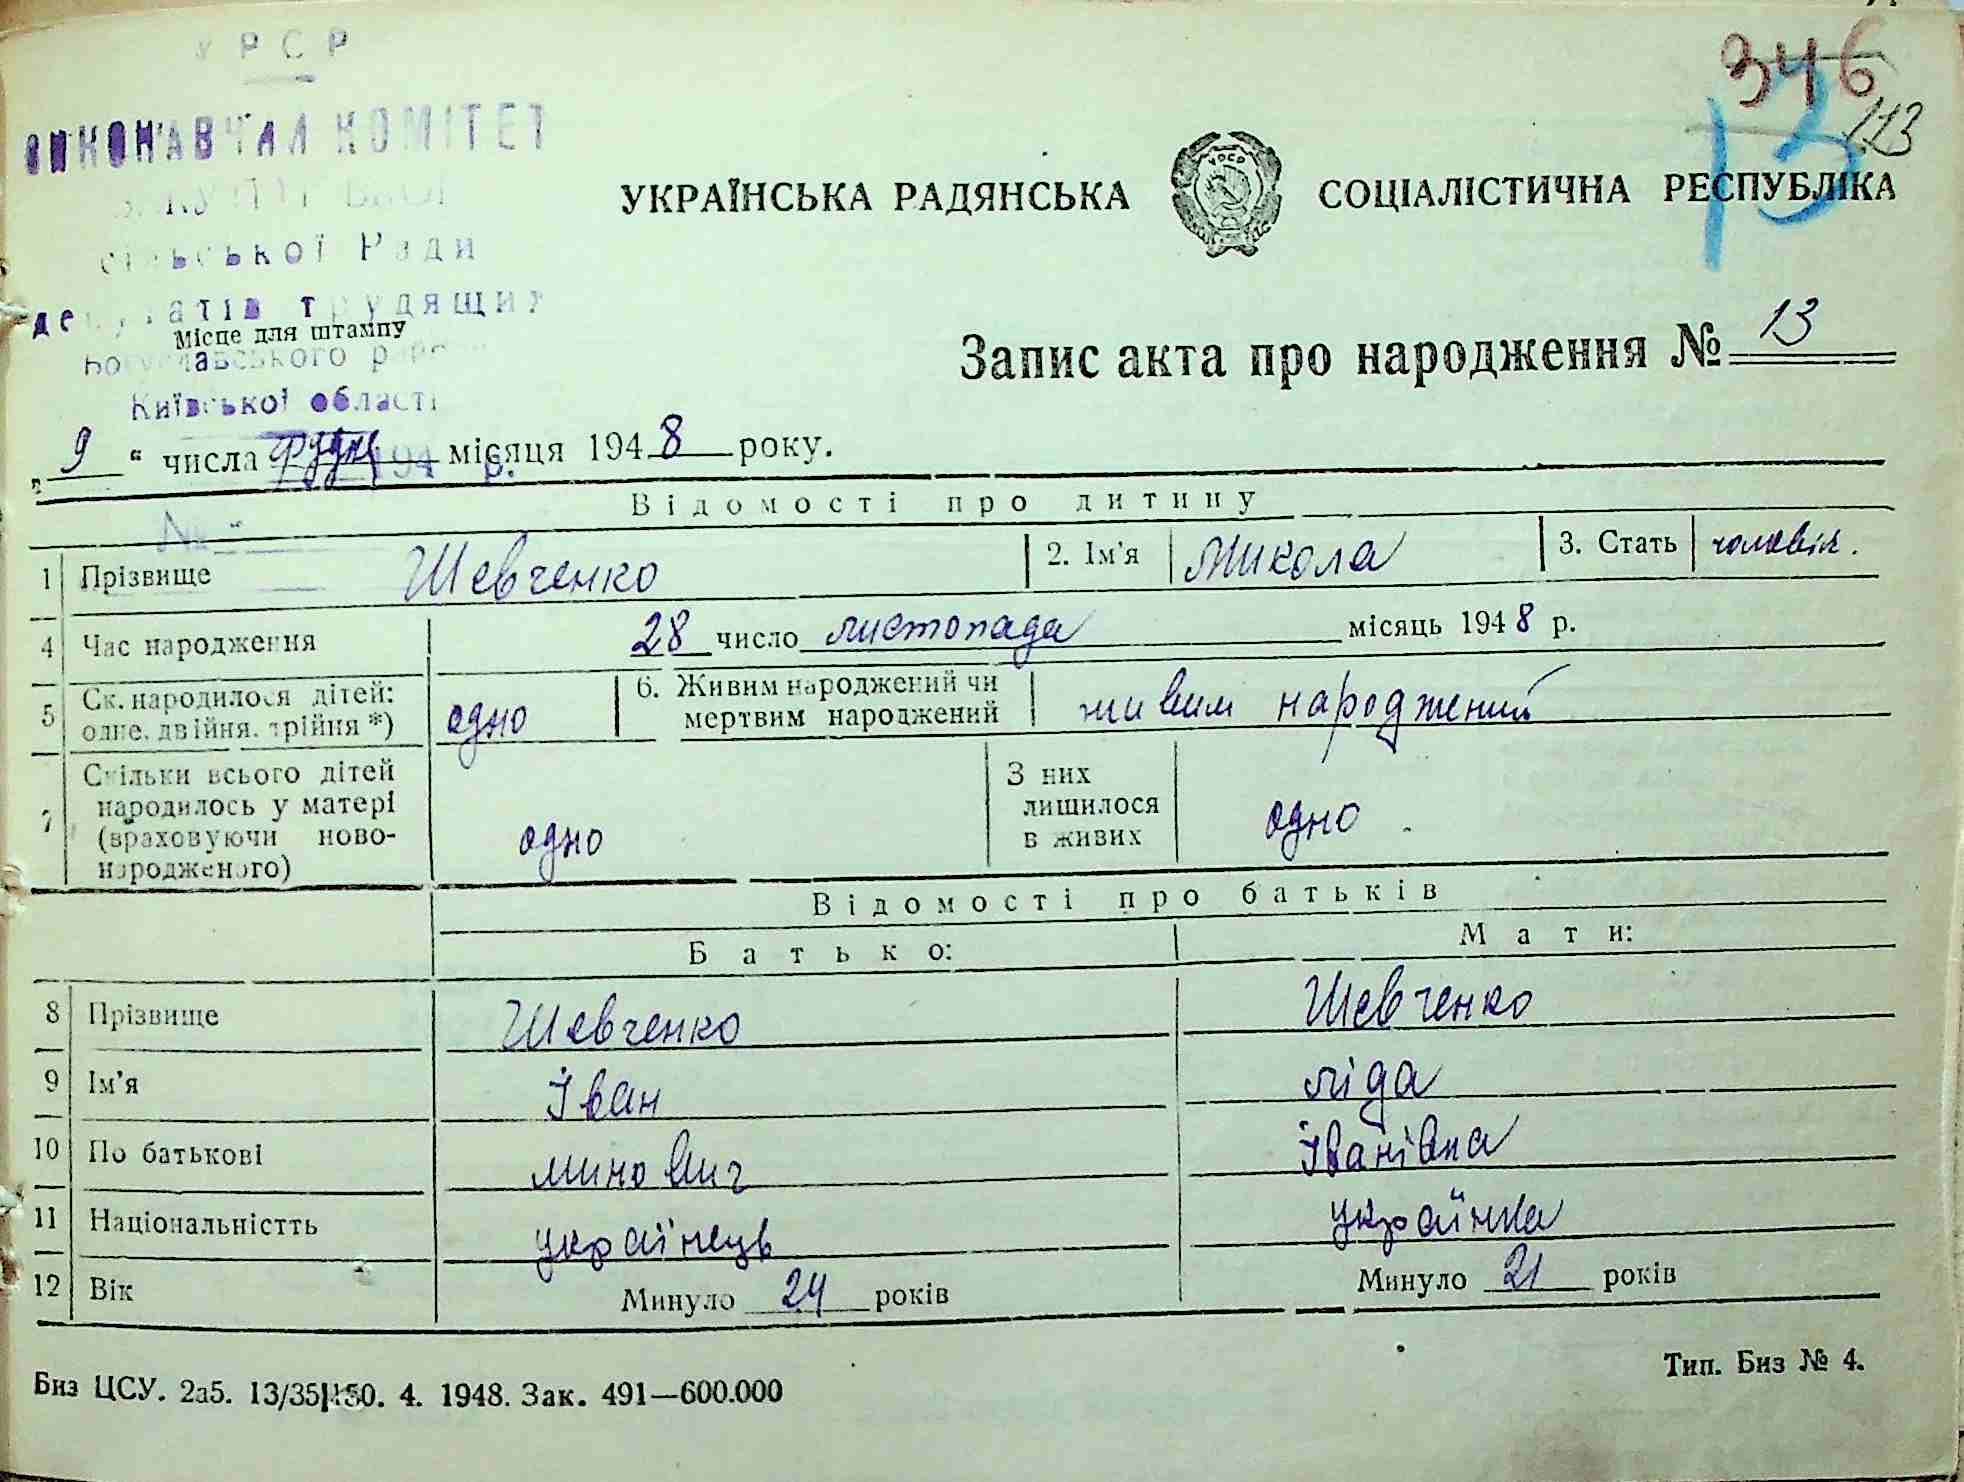 УРСР
ВИКОНАВЧИЙ КОМІТЕТ
сільської Ради
депутатів трудящих
Місце для штампу
Богуславського району
Київської області
346
13
113
УКРАЇНСЬКА РАДЯНСЬКА СОЦІАЛІСТИЧНА РЕСПУБЛІКА
Запис акта про народження № 13
„ 9 “ числа грудня місяця 1948 року.
194 р.
№
Відомості про дитину
1 Прізвище Шевченко 2. Ім'я Микола 3. Стать чоловіч.
4 Час народження 28 число листопада місяць 1948 р.
5 Ск. народилося дітей: одне, двійня, трійня *) одно 6. Живим народжений чи мертвим народжений живим народжений
7 Скільки всього дітей народилось у матері (враховуючи новонародженого) одно З них лишилося в живих одно.
Відомості про батьків
Батько: Мати:
8 Прізвище Шевченко Шевченко
9 Ім'я Іван Ліда
10 По батькові Минович Іванівна
11 Національністть українець українка
12 Вік Минуло 24 років Минуло 21 років
Биз ЦСУ. 2а5. 13/35 150. 4. 1948. Зак. 491—600.000
Тип. Биз № 4.